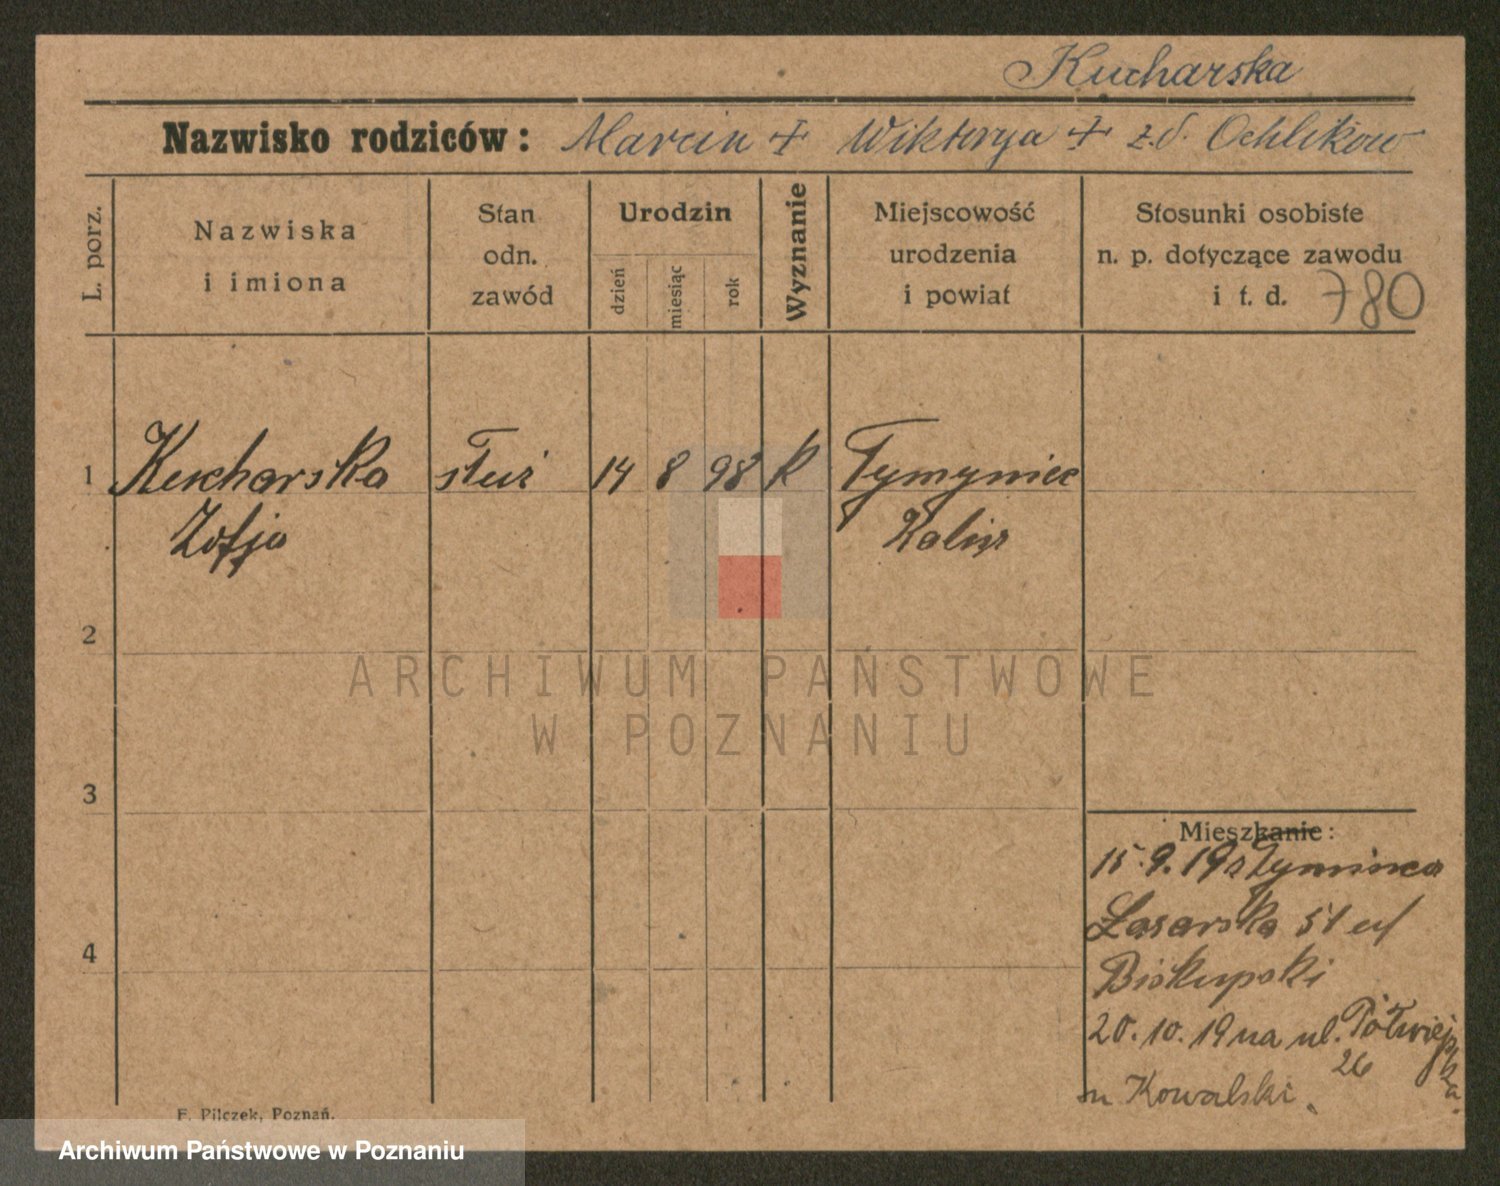 Kucharska
Nazwisko rodziców: Marcin + Wiktorya + z.d. Ochlikow
L. porz.
Nazwiska i imiona
Stan odn. zawód
Urodzin
dzień
miesiąc
rok
Wyznanie
Miejscowość urodzenia i powiat
Stosunki osobiste n. p. dotyczące zawodu i t. d.
780
1 Kucharska służ 14 8 98 k Tymyniec
Zofja Kalisz
2
ARCHIWUM PAŃSTWOWE
W POZNANIU
3
Mieszkanie:
15.9.19 z Tyminca
Łazarska 51
Biskupski
4
20.10.19 na ul. Półwiejska
26
Kowalski
F. Pilczek, Poznań.
Archiwum Państwowe w Poznaniu